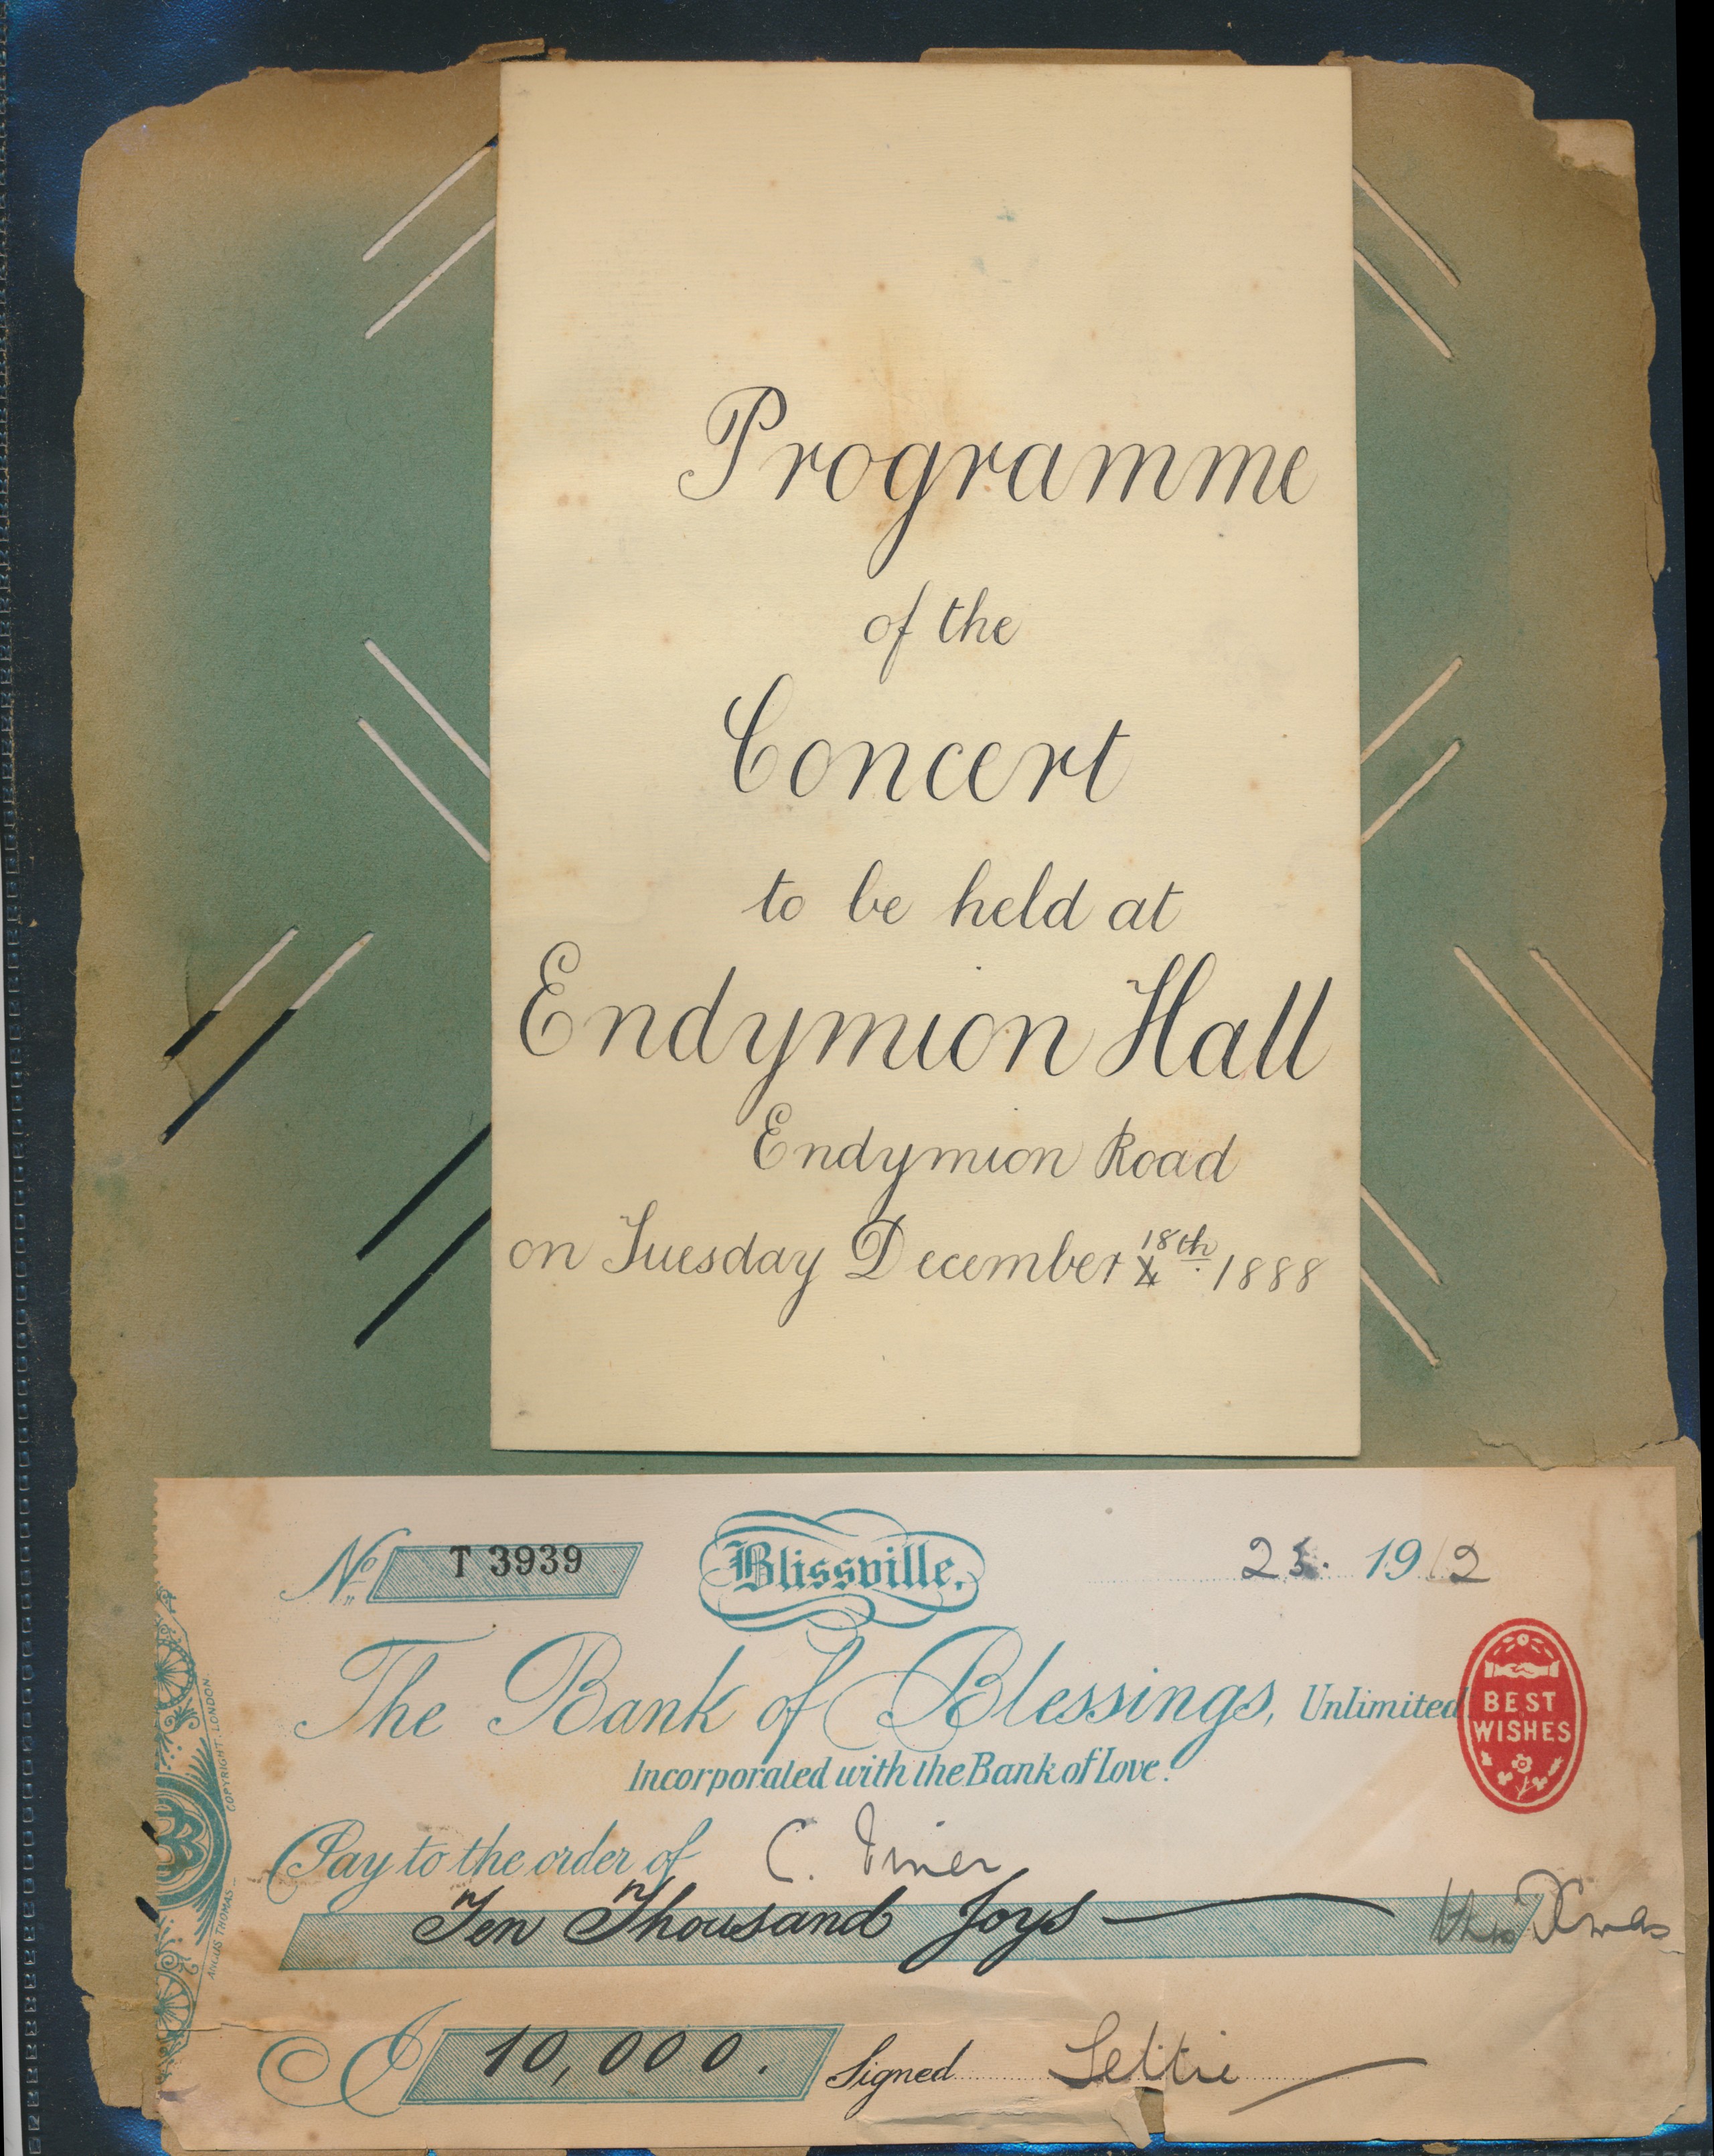 Programme
of the
Concert
to be held at
Endymion Hall
Endymion Road
on Tuesday December 18th 1888
No T 3939
Blissville.
25. 1912
The Bank of Blessings, Unlimited
Incorporated with the Bank of Love.
BEST
WISHES
Pay to the order of C.
Ten Thousand Joys this Xmas
10,000.
Signed Lettie
ANGUS THOMAS — COPYRIGHT. LONDON.
B